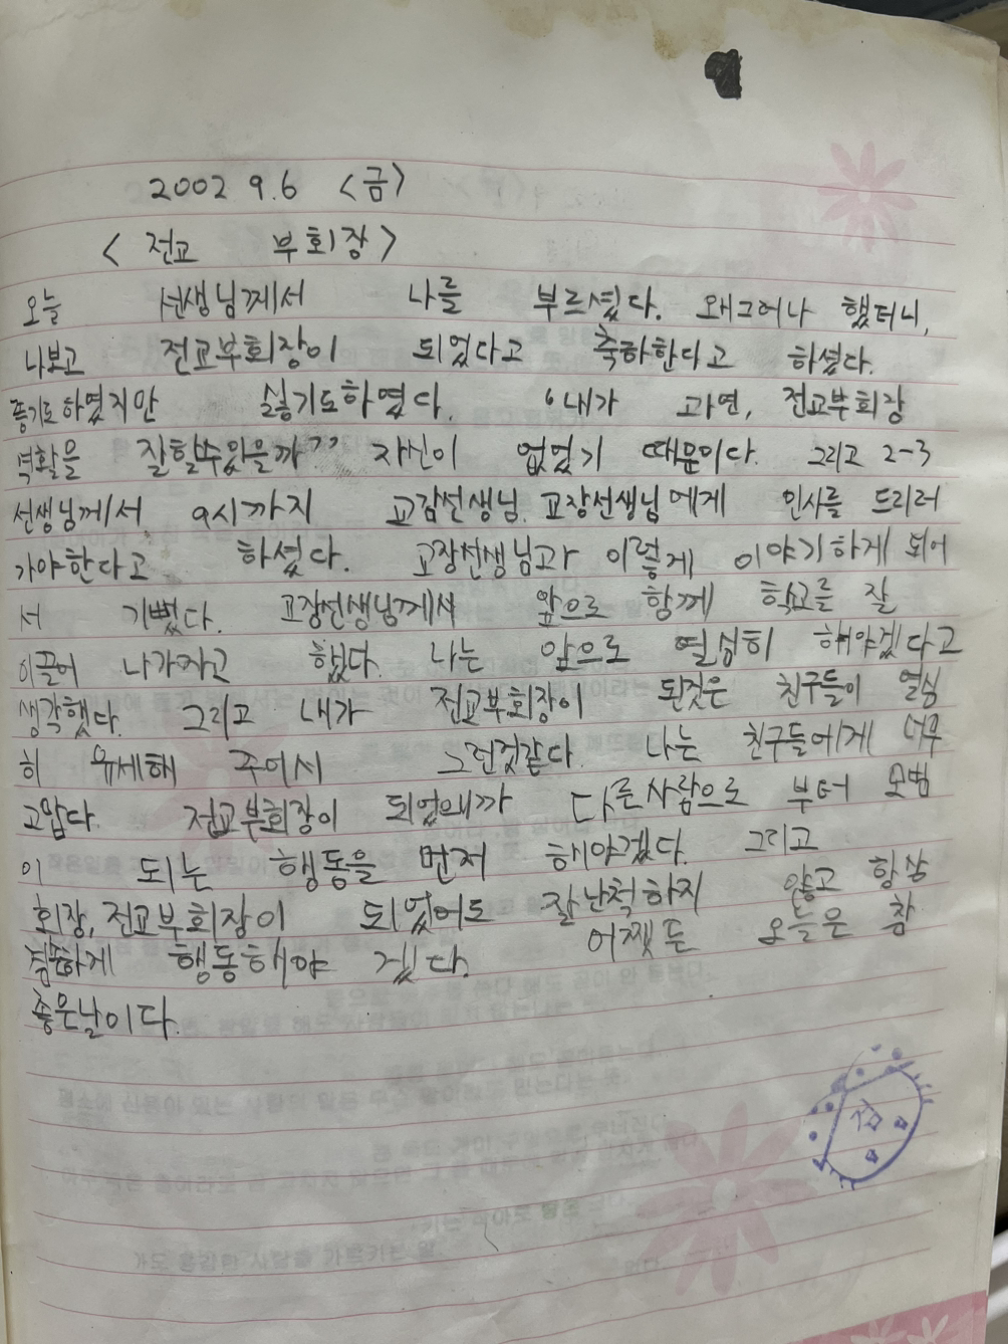 2002 9.6 <금>
< 전교 부회장 >
오늘 선생님께서 나를 부르셨다. 왜그러나 했더니,
나보고 전교부회장이 되었다고 축하한다고 하셨다.
좋기도하였지만 싫기도하였다. "내가 과연, 전교부회장
역활을 잘할수있을까" 자신이 없었기 때문이다. 그리고 2-3
선생님께서 9시까지 교감선생님, 교장선생님에게 인사를 드리러
가야한다고 하셨다. 교장선생님과 이렇게 이야기하게 되어
서 기뻤다. 교장선생님께서 앞으로 함께 학교를 잘
이끌어 나가자고 했다. 나는 앞으로 열심히 해야겠다고
생각했다. 그리고 내가 전교부회장이 된것은 친구들이 열심
히 유세해 주어서 그런것같다. 나는 친구들에게 너무
고맙다. 전교부회장이 되었으니까 다른사람으로 부터 모범
이 되는 행동을 먼저 해야겠다. 그리고
회장, 전교부회장이 되었어도 잘난척하지 않고 항상
겸손하게 행동해야 겠다. 어쨋든 오늘은 참
좋은날이다.